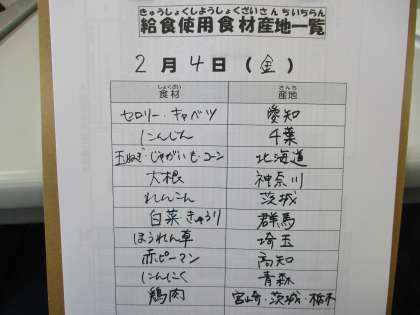 きゅうしょくしようしょくざいさんちいちらん
給食使用食材産地一覧
2月4日(金)
しょくざい さんち
食材 産地
セロリー・キャベツ 愛知
にんじん 千葉
玉ねぎ・じゃがいも・コーン 北海道
大根 神奈川
れんこん 茨城
白菜 きゅうり 群馬
ほうれん草 埼玉
赤ピーマン 高知
にんにく 青森
鶏肉 宮崎・茨城・栃木